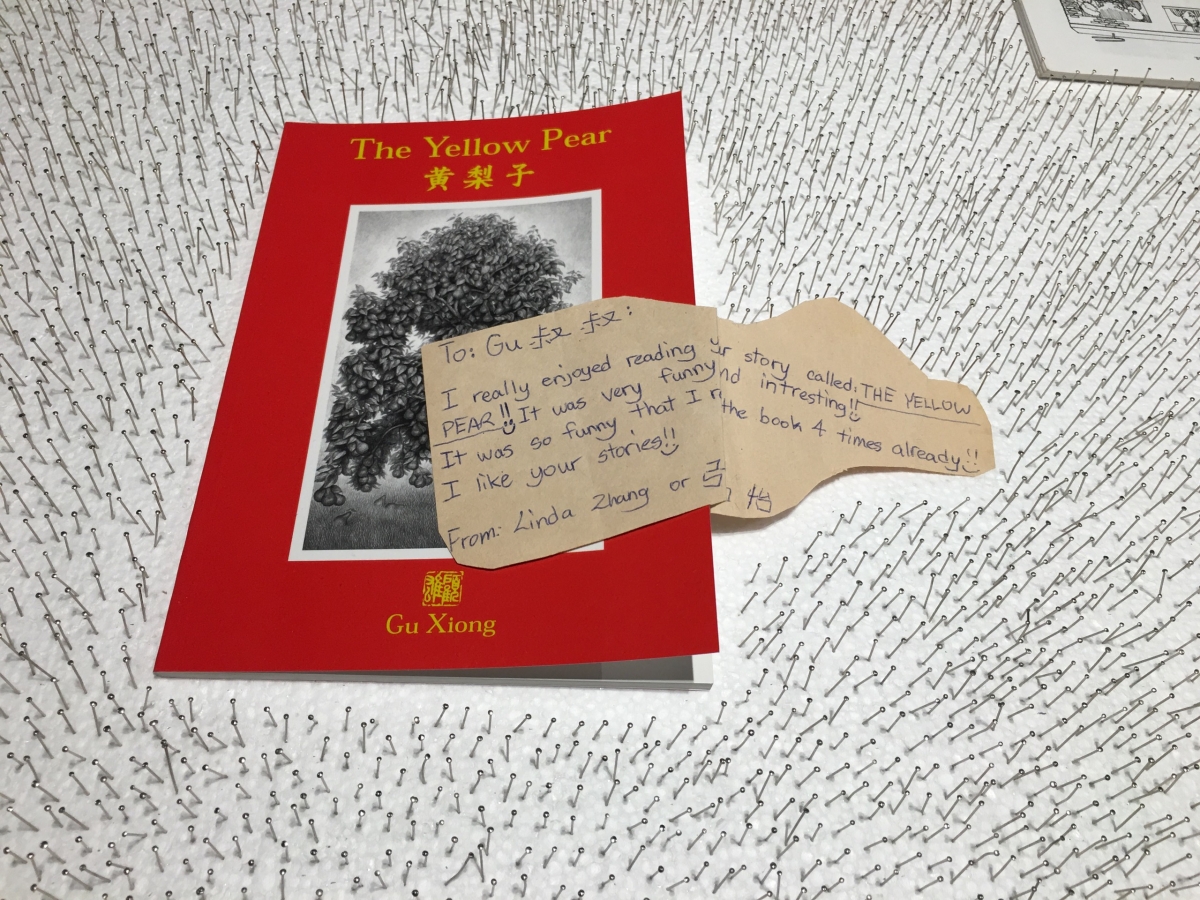 The Yellow Pear
黄梨子
To: Gu 叔叔:
I really enjoyed reading story called: THE YELLOW
PEAR!! It was very funny intresting!!
It was so funny that I the book 4 times already!!
I like your stories!!
From: Linda Zhang or
Gu Xiong